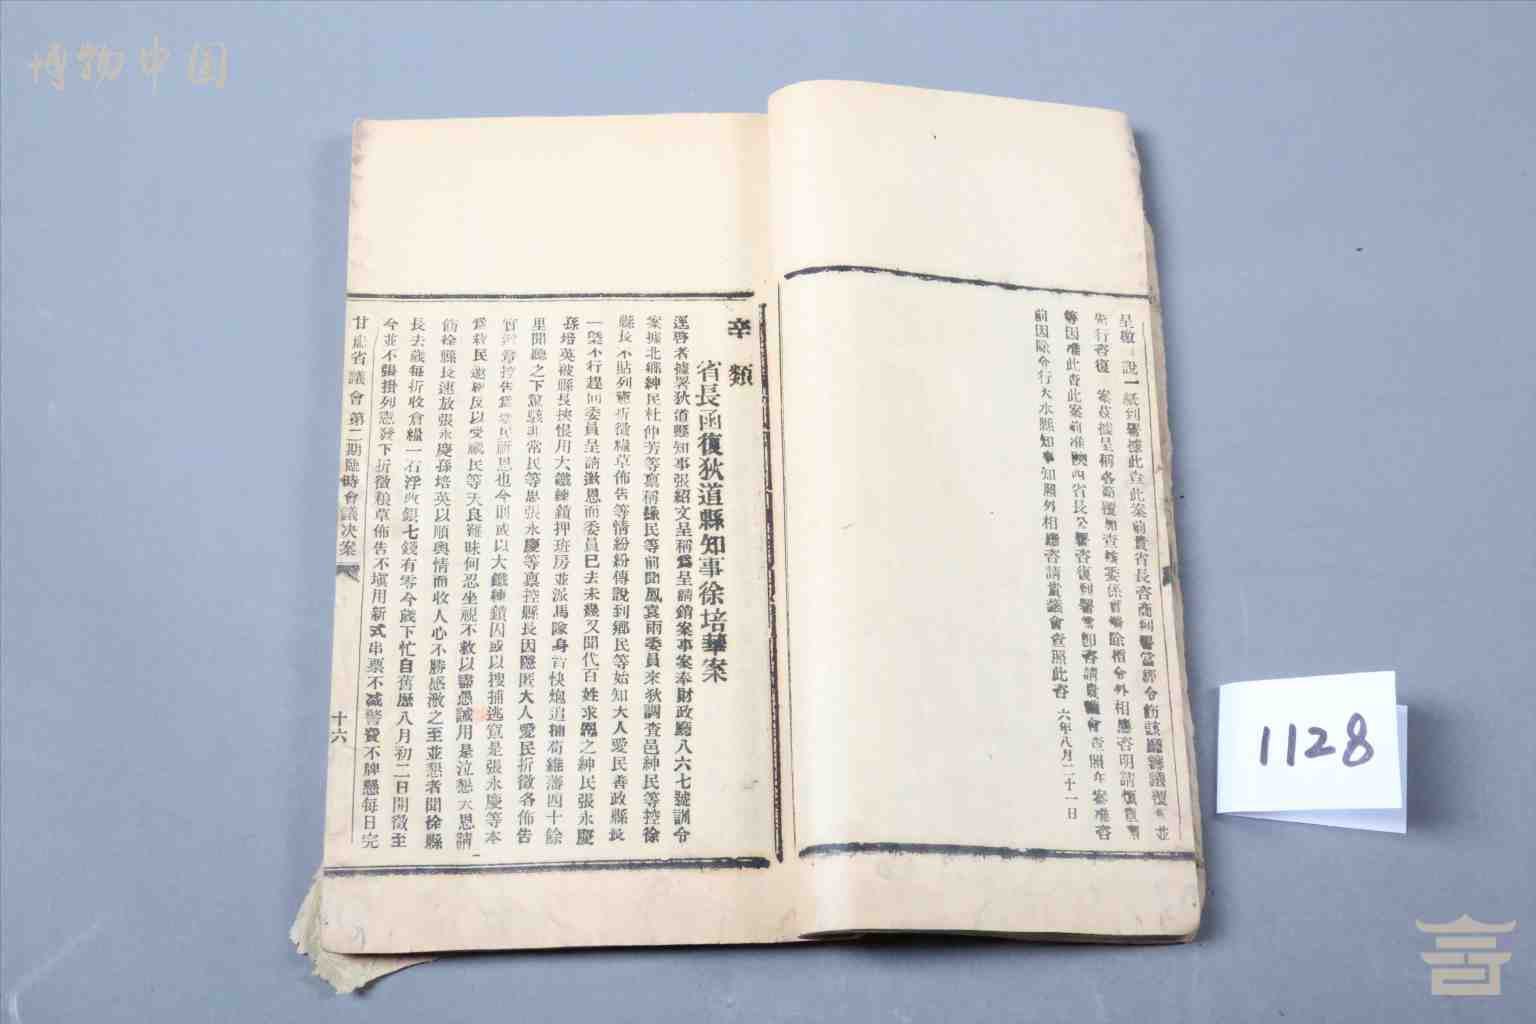 博物中国
呈徵 說一紙到署據此查此案前貴省長咨商到署當經令飭該廳籌議覆 並
先行咨復 案茲據呈稱各節覆加查核委係實 除指令外相應咨明請煩貴 
等因准此查此案前准陝西省長公署咨復到署當卽咨請貴議會查照在案准咨
前因除令行天水縣知事知照外相應咨請貴議會查照此咨 六年八月二十一日
辛類
省長函復狄道縣知事徐培華案
逕啓者據署狄道縣知事張紹文呈稱爲呈請銷案事案奉財政廳八六七號訓令
案據北鄉紳民杜仲芳等稟稱緣民等前聞鳳袁兩委員來狄調查邑紳民等控徐
縣長不貼列憲折徵糧草佈告等情紛紛傳說到鄉民等始知大人愛民善政縣長
一槩不行趕回委員呈請激恩而委員已去未幾又聞代百姓求恩之紳民張永慶
孫培英被縣長挾恨用大鐵練鎖押班房並派馬隊身背快炮追捕荀維藩四十餘
里聞聽之下驚駭非常民等思張永慶等稟控縣長因隱匿大人愛民折徵各佈告
百姓等控告爲 民祈恩也今則或以大鐵練鎖囚或以搜捕逃竄是張永慶等本
爲救民 反以受 民等天良難昧何忍坐視不救以盡愚誠用是泣懇大恩請
飭徐縣長速放張永慶孫培英以順輿情而收人心不勝感激之至並懇者聞徐縣
長去歲每折收倉糧一石浮收銀七錢有零今歲下忙自舊歷八月初二日開徵至
今並不張掛列憲發下折徵粮草佈告不塡用新式串票不減警費不牌懸每日完
甘肅省議會第二期臨時會議決案 十六
1128